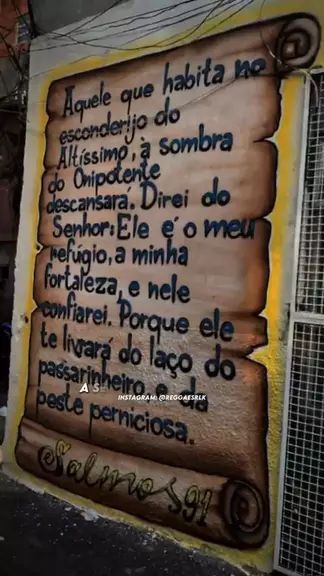 Aquele que habita no
esconderijo do
Altíssimo, à sombra
do Onipotente
descansará. Direi do
Senhor: Ele é o meu
refúgio, a minha
fortaleza, e nele
confiarei. Porque ele
te livrará do laço do
passarinheiro e da
peste perniciosa.
Salmo 91
A S
INSTAGRAM: @REGGAESRLK